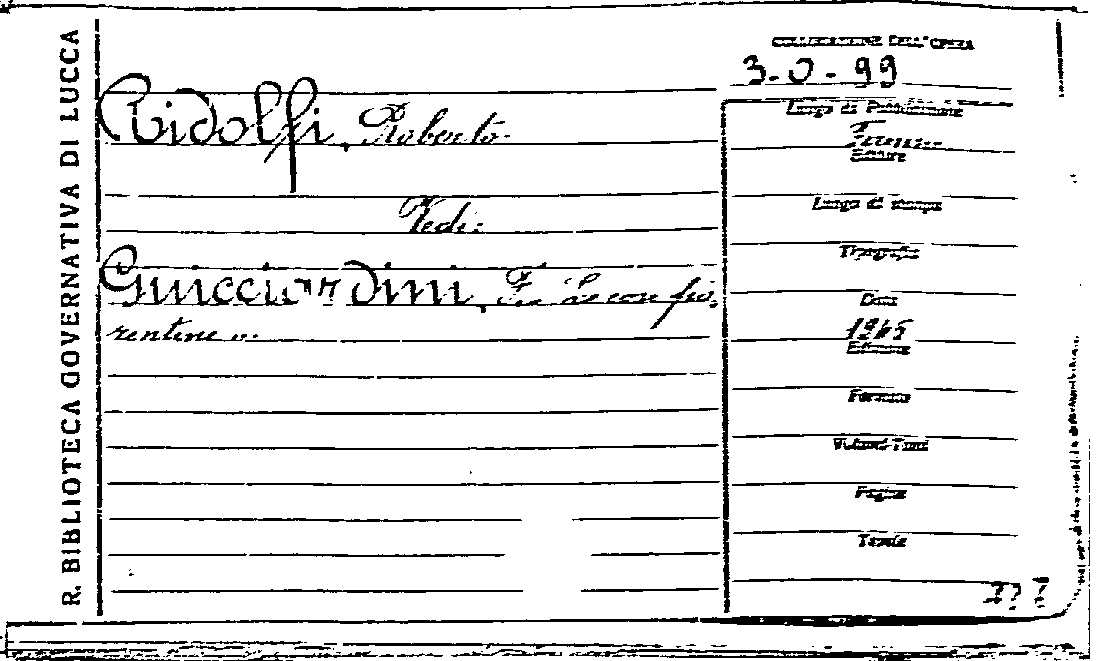 R. BIBLIOTECA GOVERNATIVA DI LUCCA
COLLOCAZIONE DELL'OPERA
3-0-99
Ridolfi, Roberto
Vedi:
Guicciardini, Fr. Le cose fio-
rentine
Luogo di Pubblicazione
Firenze
Editore
Luogo di stampa
Tipografia
Data
1945
Edizione
Formato
Volumi-Tomi
Pagine
Tavole